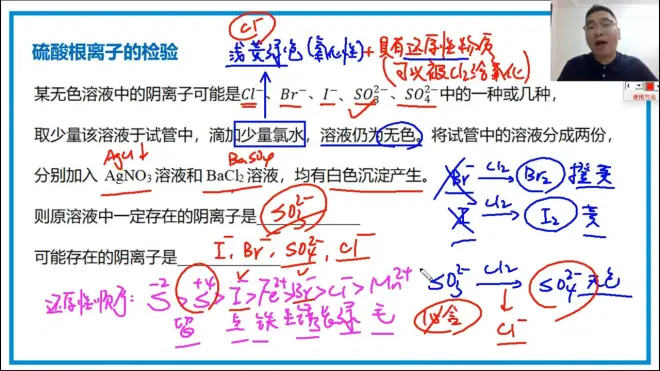 Cl⁻
硫酸根离子的检验
浅黄绿色(氧化性)+具有还原性物质
(可以被Cl2给氧化)
某无色溶液中的阴离子可能是Cl⁻、Br⁻、I⁻、SO₃²⁻、SO₄²⁻中的一种或几种,
取少量该溶液于试管中,滴加少量氯水,溶液仍为无色。将试管中的溶液分成两份,
AgCl↓ BaSO4
分别加入 AgNO₃溶液和BaCl₂溶液,均有白色沉淀产生。
Br⁻ Cl2→ Br2 橙黄
I⁻ Cl2→ I2 黄
则原溶液中一定存在的阴离子是 SO₃²⁻
可能存在的阴离子是 I⁻、Br⁻、SO₄²⁻、Cl⁻
SO₃²⁻ Cl2→ SO₄²⁻ 无色
必含 Cl⁻
还原性顺序: S⁻²>S⁺⁴>I⁻>Fe²⁺>Br⁻>Cl⁻>Mn²⁺
绿 毛
使用方法